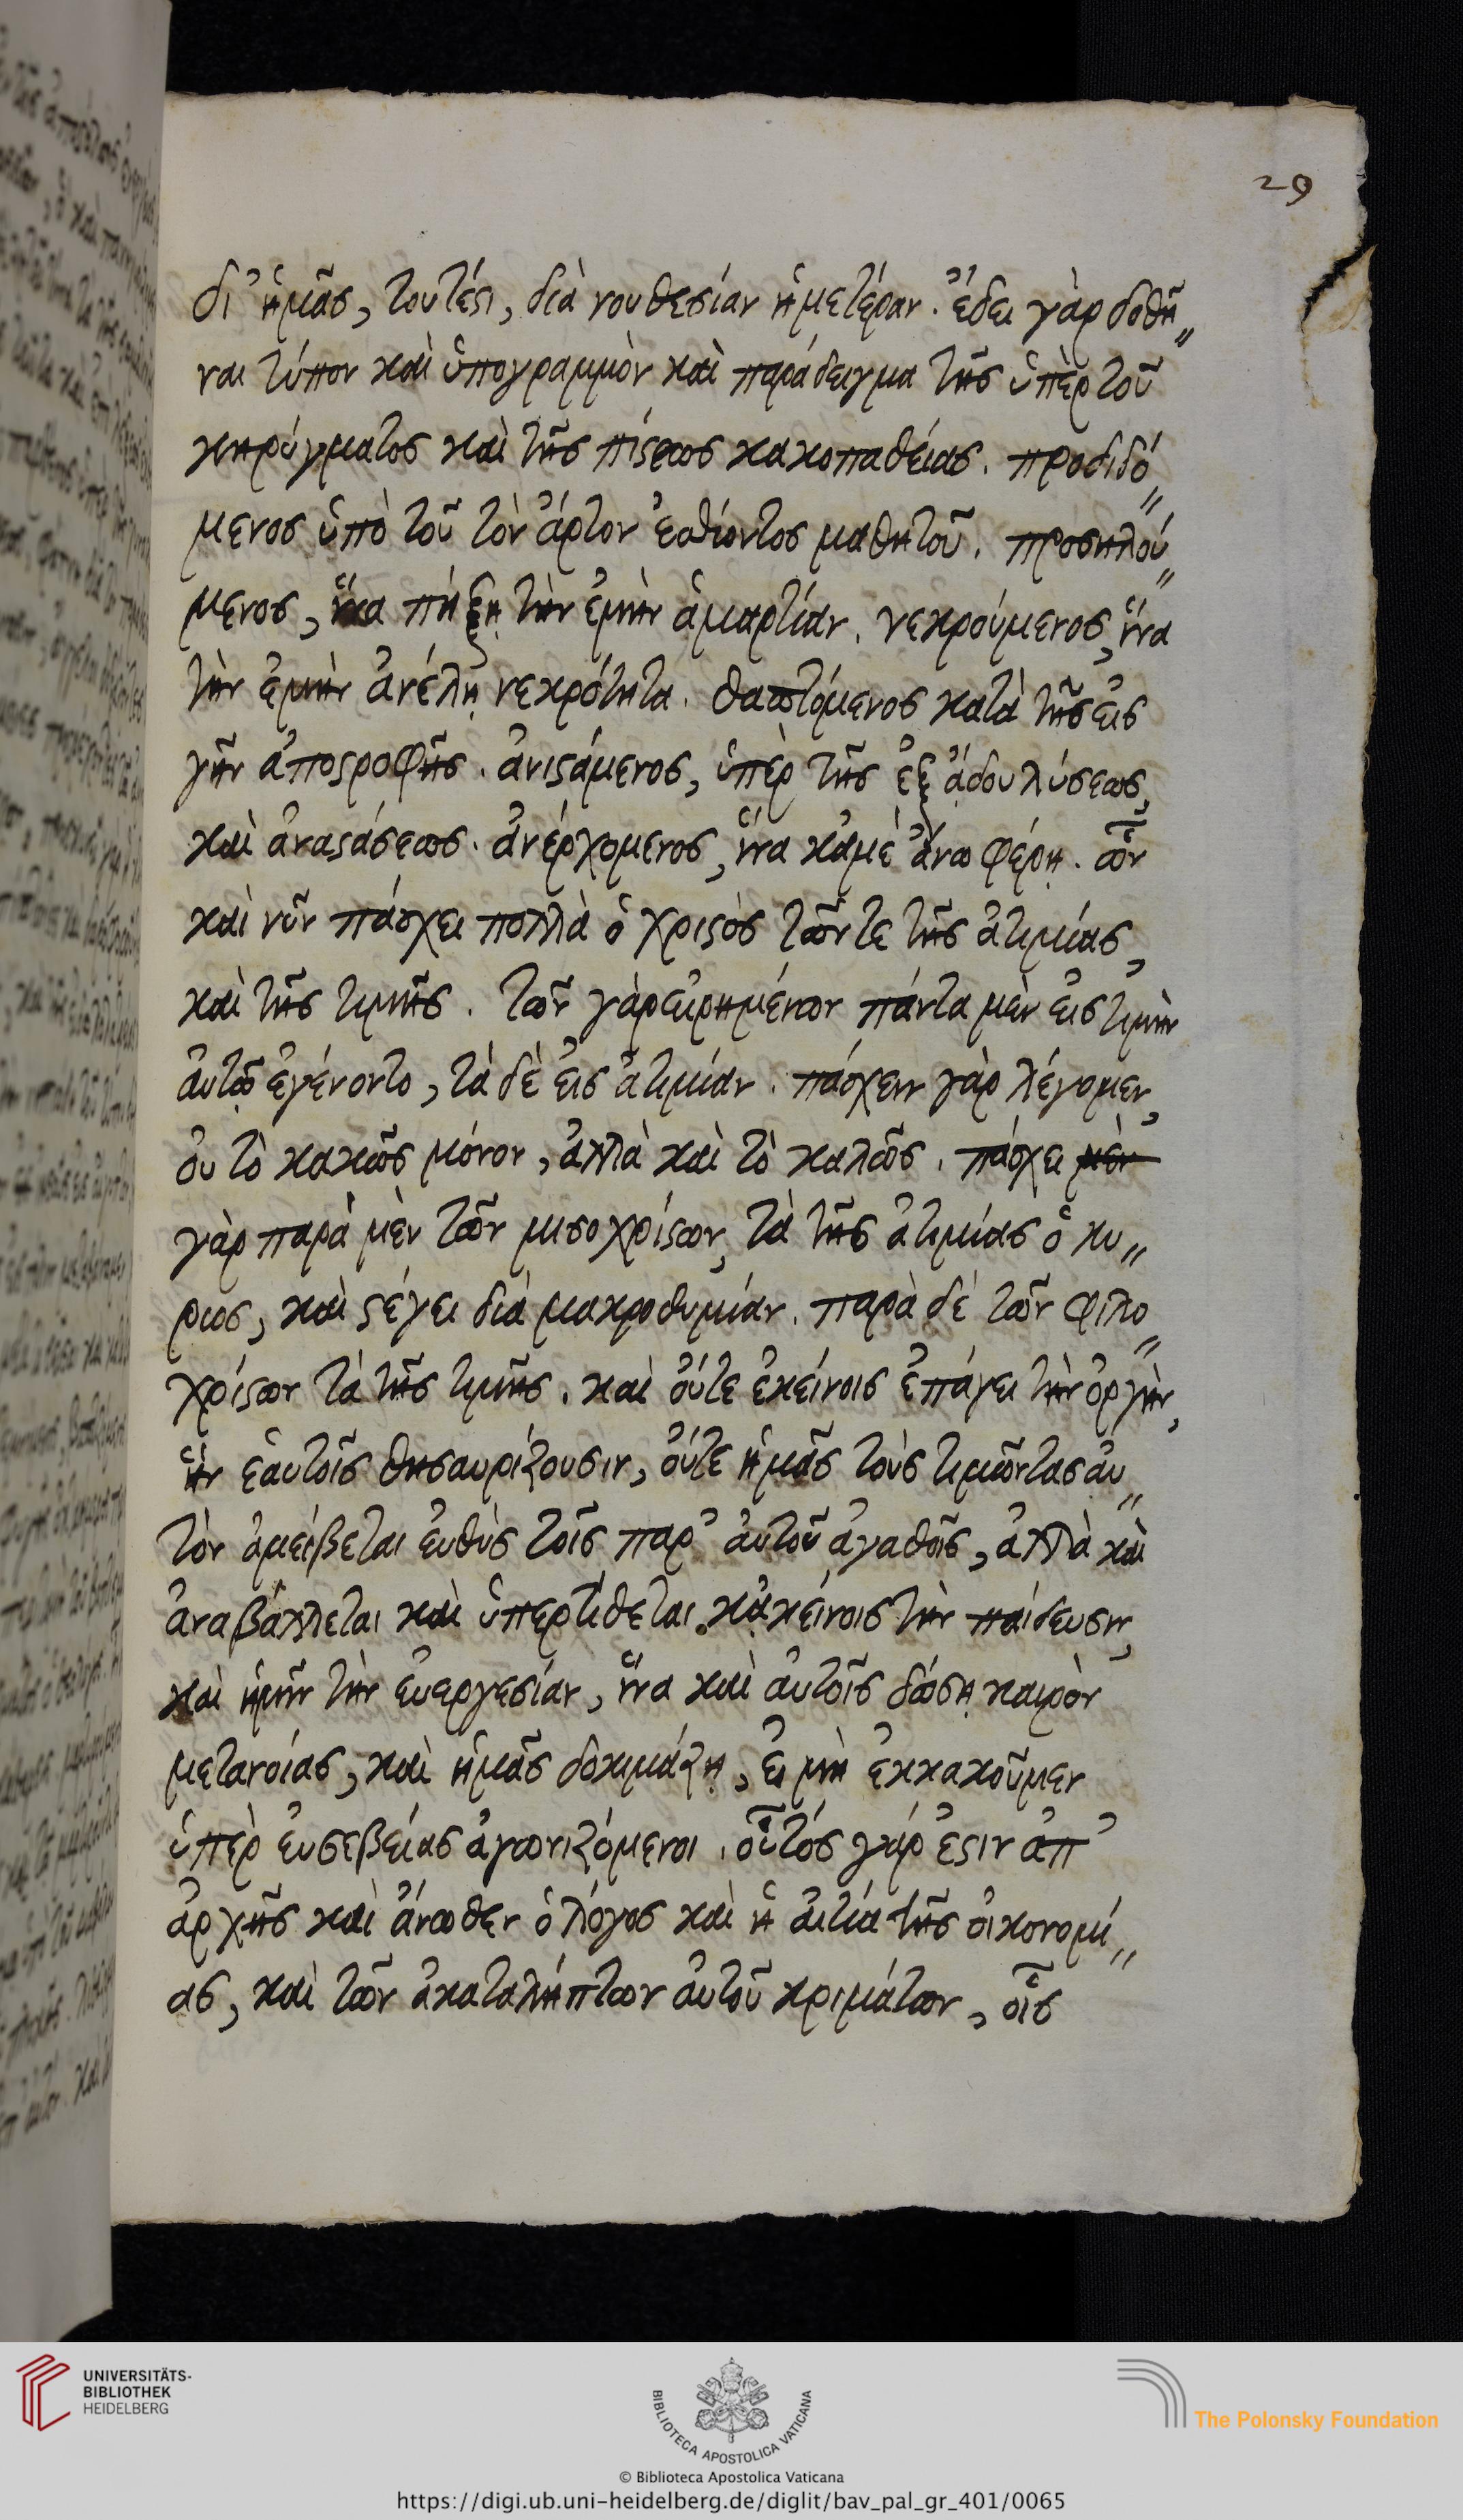 29
δι' ἡμᾶς, τουτέστι, διὰ νουθεσίαν ἡμετέραν. ἔδει γὰρ δοθῆ〃
ναι τύπον καὶ ὑπογραμμὸν καὶ παράδειγμα τῆς ὑπὲρ τοῦ
κηρύγματος καὶ τῆς πίστεως κακοπαθείας. προδιδό〃
μενος ὑπὸ τοῦ τὸν ἄρτον ἐσθίοντος μαθητοῦ. προσηλού〃
μενος, ἵνα πήξῃ τὴν ἐμὴν ἁμαρτίαν. νεκρούμενος, ἵνα
τὴν ἐμὴν ἀνέλῃ νεκρότητα. θαπτόμενος κατὰ τῆς εἰς
γῆν ἀποστροφῆς. ἀνιστάμενος, ὑπὲρ τῆς ἐξ ᾅδου λύσεως,
καὶ ἀναστάσεως. ἀνερχόμενος, ἵνα κἀμὲ ἄνω φέρῃ. ὧν
καὶ νῦν πάσχει πολλὰ ὁ χριστὸς τῶν τε τῆς ἀτιμίας,
καὶ τῆς τιμῆς. τῶν γὰρ εἰρημένων πάντα μὲν εἰς τιμὴν
αὐτῷ ἐγένοντο, τὰ δὲ εἰς ἀτιμίαν. πάσχειν γὰρ λέγομεν,
οὐ τὸ κακῶς μόνον, ἀλλὰ καὶ τὸ καλῶς. πάσχει μὲν
γὰρ παρὰ μὲν τῶν μισοχρίστων, τὰ τῆς ἀτιμίας ὁ κυ〃
ριος, καὶ στέγει διὰ μακροθυμίαν. παρὰ δὲ τῶν φιλο〃
χρίστων τὰ τῆς τιμῆς. καὶ οὔτε ἐκείνοις ἐπάγει τὴν ὀργὴν,
ἣν ἑαυτοῖς θησαυρίζουσιν, οὔτε ἡμᾶς τοὺς τιμῶντας αὐ〃
τὸν ἀμείβεται εὐθὺς τοῖς παρ' αὐτοῦ ἀγαθοῖς, ἀλλὰ καὶ
ἀναβάλλεται καὶ ὑπερτίθεται. κἀκείνοις τὴν παίδευσιν,
καὶ ἡμῖν τὴν εὐεργεσίαν, ἵνα καὶ αὐτοῖς δώσῃ καιρὸν
μετανοίας, καὶ ἡμᾶς δοκιμάζῃ, εἰ μὴ ἐκκακοῦμεν
ὑπὲρ εὐσεβείας ἀγωνιζόμενοι. οὗτός γάρ ἐστιν ἀπ'
ἀρχῆς καὶ ἄνωθεν ὁ λόγος καὶ ἡ αἰτία τῆς οἰκονομί〃
ας, καὶ τῶν ἀκαταλήπτων αὐτοῦ κριμάτων, οἷς
UNIVERSITÄTS-
BIBLIOTHEK
HEIDELBERG
BIBLIOTECA APOSTOLICA VATICANA
The Polonsky Foundation
© Biblioteca Apostolica Vaticana
https://digi.ub.uni-heidelberg.de/diglit/bav_pal_gr_401/0065